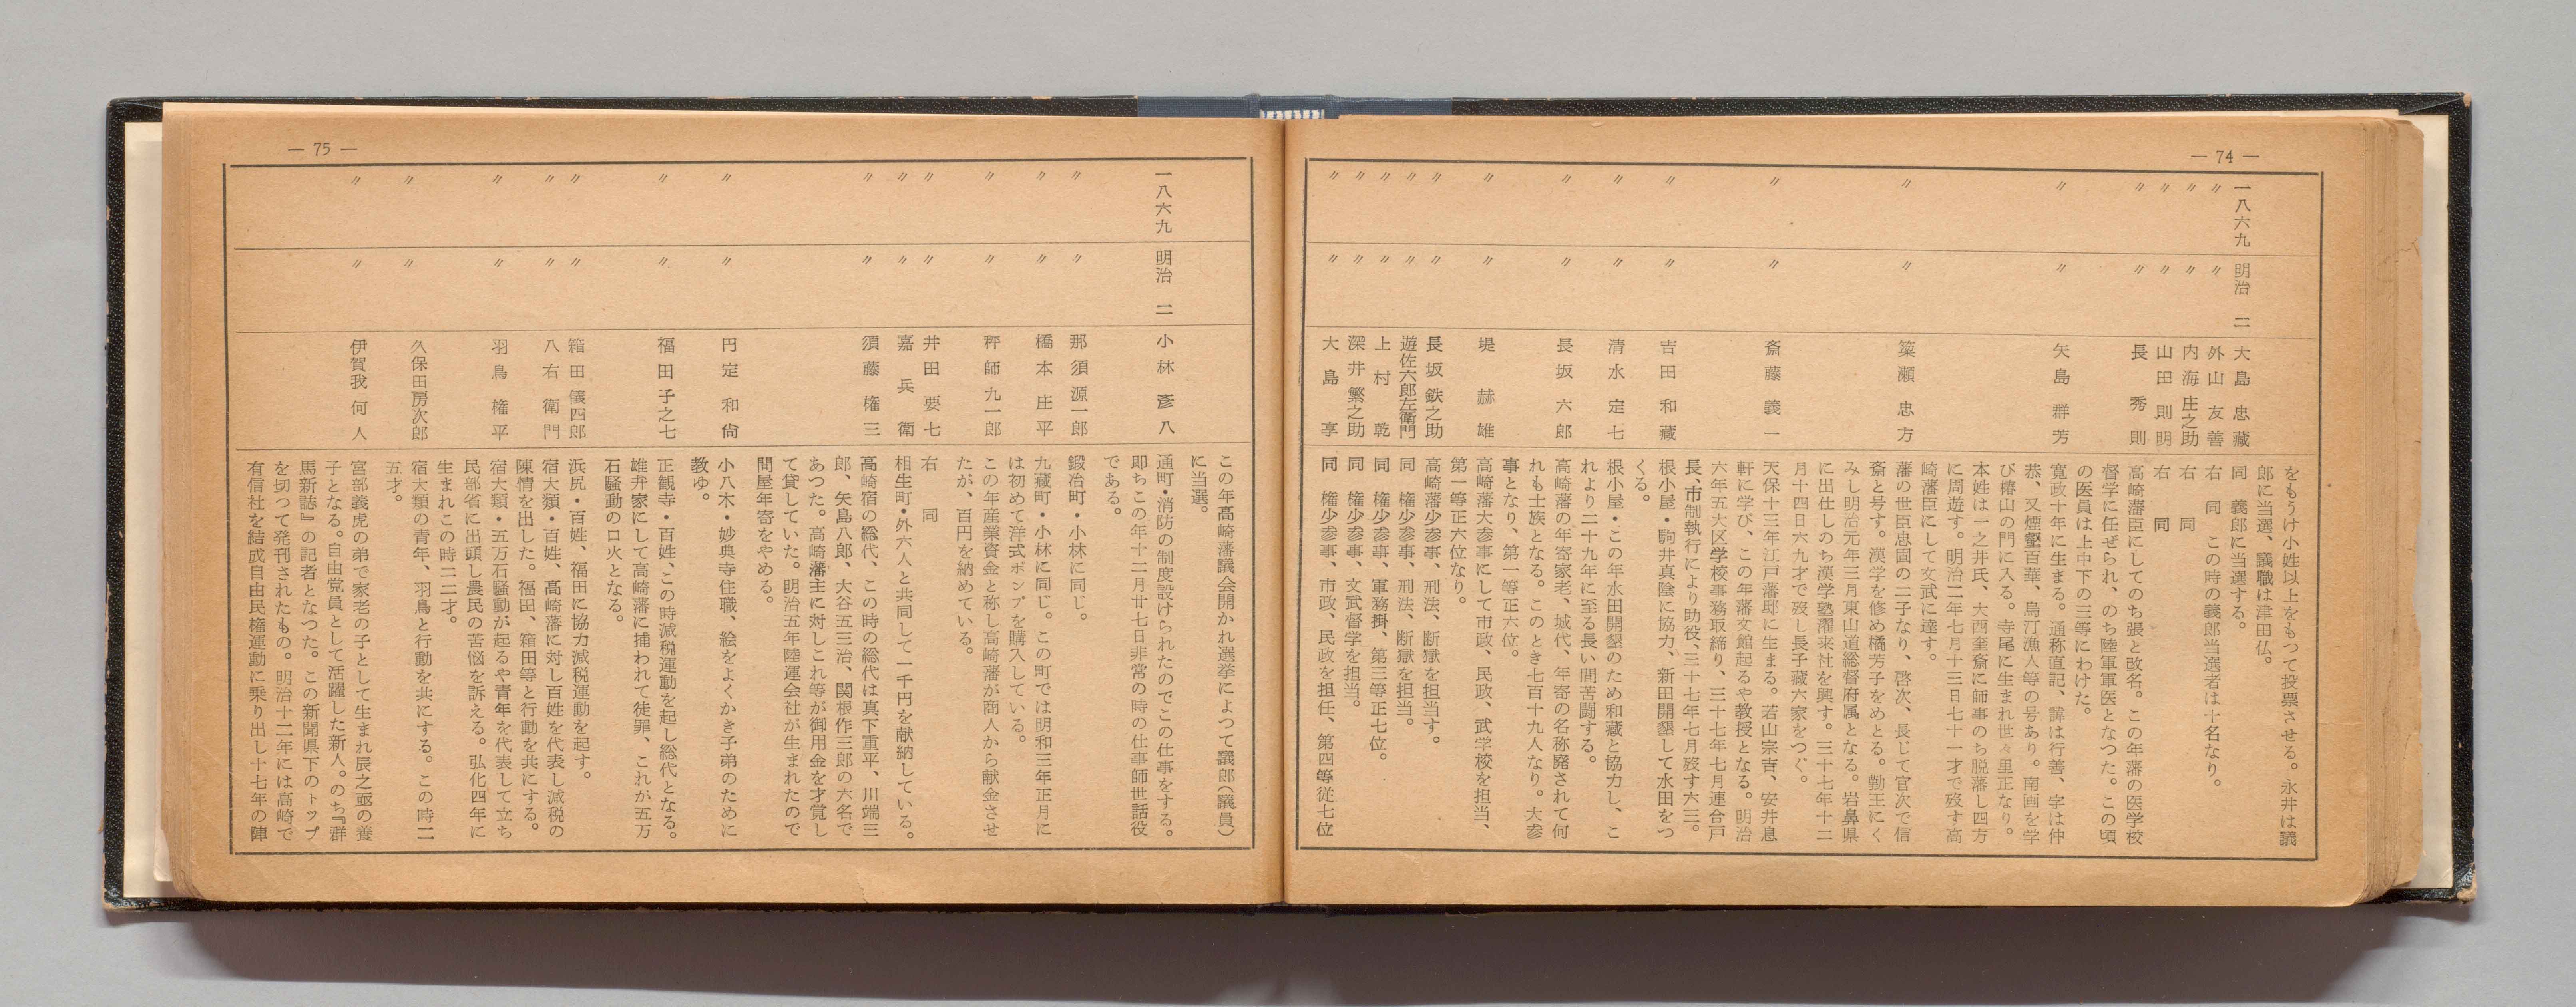 ― 74 ―
をもうけ小姓以上をもつて投票させる。永井は議
郎に当選、議職は津田仏。
一八六九 明治二 大島忠蔵 同 義郎に当選する。
〃 〃 外山友善 右 同 この時の義郎当選者は十名なり。
〃 〃 内海庄之助 右 同
〃 〃 山田則明 右 同
〃 〃 長秀則 高崎藩臣にしてのち張と改名。この年藩の医学校
督学に任ぜられ、のち陸軍軍医となつた。この頃
の医員は上中下の三等にわけた。
〃 〃 矢島群芳 寛政十年に生まる。通称直記、諱は行善、字は仲
恭、又煙壑百華、烏汀漁人等の号あり。南画を学
び椿山の門に入る。寺尾に生まれ世々里正なり。
本姓は一之井氏、大西奎斎に師事のち脱藩し四方
に周遊す。明治二年七月十三日七十一才で歿す高
崎藩臣にして文武に達す。
〃 〃 簗瀬忠方 藩の世臣忠固の二子なり、啓次、長じて官次で信
斎と号す。漢学を修め橘芳子をめとる。勤王にく
みし明治元年三月東山道総督府属となる。岩鼻県
に出仕しのち漢学塾濯来社を興す。三十七年十二
月十四日六九才で歿し長子蔵六家をつぐ。
〃 〃 斎藤義一 天保十三年江戸藩邸に生まる。若山宗吉、安井息
軒に学び、この年藩文館起るや教授となる。明治
六年五大区学校事務取締り、三十七年七月連合戸
長、市制執行により助役、三十七年七月歿す六三。
〃 〃 吉田和蔵 根小屋・駒井真陰に協力、新田開懇して水田をつ
くる。
〃 〃 清水定七 根小屋・この年水田開懇のため和蔵と協力し、こ
れより二十九年に至る長い間苦闘する。
〃 〃 長坂六郎 高崎藩の年寄家老、城代、年寄の名称廃されて何
れも士族となる。このとき七百十九人なり。大参
事となり、第一等正六位。
〃 〃 堤赫雄 高崎藩大参事にして市政、民政、武学校を担当、
第一等正六位なり。
〃 〃 長坂鉄之助 高崎藩少参事、刑法、断獄を担当す。
〃 〃 遊佐六郎左衛門 同 権少参事、刑法、断獄を担当。
〃 〃 上村乾 同 権少参事、軍務掛、第三等正七位。
〃 〃 深井繁之助 同 権少参事、文武督学を担当。
〃 〃 大島享 同 権少参事、市政、民政を担任、第四等従七位
― 75 ―
この年高崎藩議会開かれ選挙によつて議郎(議員)
に当選。
一八六九 明治二 小林彦八 通町・消防の制度設けられたのでこの仕事をする。
即ちこの年十二月廿七日非常の時の仕事師世話役
である。
〃 〃 那須源一郎 鍛冶町・小林に同じ。
〃 〃 橋本庄平 九蔵町・小林に同じ。この町では明和三年正月に
は初めて洋式ポンプを購入している。
〃 〃 秤師九一郎 この年産業資金と称し高崎藩が商人から献金させ
たが、百円を納めている。
〃 〃 井田要七 右 同
〃 〃 嘉兵衛 相生町・外六人と共同して一千円を献納している。
〃 〃 須藤権三 高崎宿の総代、この時の総代は真下重平、川端三
郎、矢島八郎、大谷五三治、関根作三郎の六名で
あつた。高崎藩主に対しこれ等が御用金を才覚し
て貸していた。明治五年陸運会社が生まれたので
問屋年寄をやめる。
〃 〃 円定和尚 小八木・妙典寺住職、絵をよくかき子弟のために
教ゆ。
〃 〃 福田子之七 正観寺・百姓、この時減税運動を起し総代となる。
雄弁家にして高崎藩に捕われて徒罪、これが五万
石騒動の口火となる。
〃 〃 箱田儀四郎 浜尻・百姓、福田に協力減税運動を起す。
〃 〃 八右衛門 宿大類・百姓、高崎藩に対し百姓を代表し減税の
陳情を出した。福田、箱田等と行動を共にする。
〃 〃 羽鳥権平 宿大類・五万石騒動が起るや青年を代表して立ち
民部省に出頭し農民の苦悩を訴える。弘化四年に
生まれこの時二二才。
〃 〃 久保田房次郎 宿大類の青年、羽鳥と行動を共にする。この時二
五才。
〃 〃 伊賀我何人 宮部義虎の弟で家老の子として生まれ辰之亟の養
子となる。自由党員として活躍した新人。のち『群
馬新誌』の記者となつた。この新聞県下のトップ
を切つて発刊されたもの。明治十二年には高崎で
有信社を結成自由民権運動に乗り出し十七年の陣